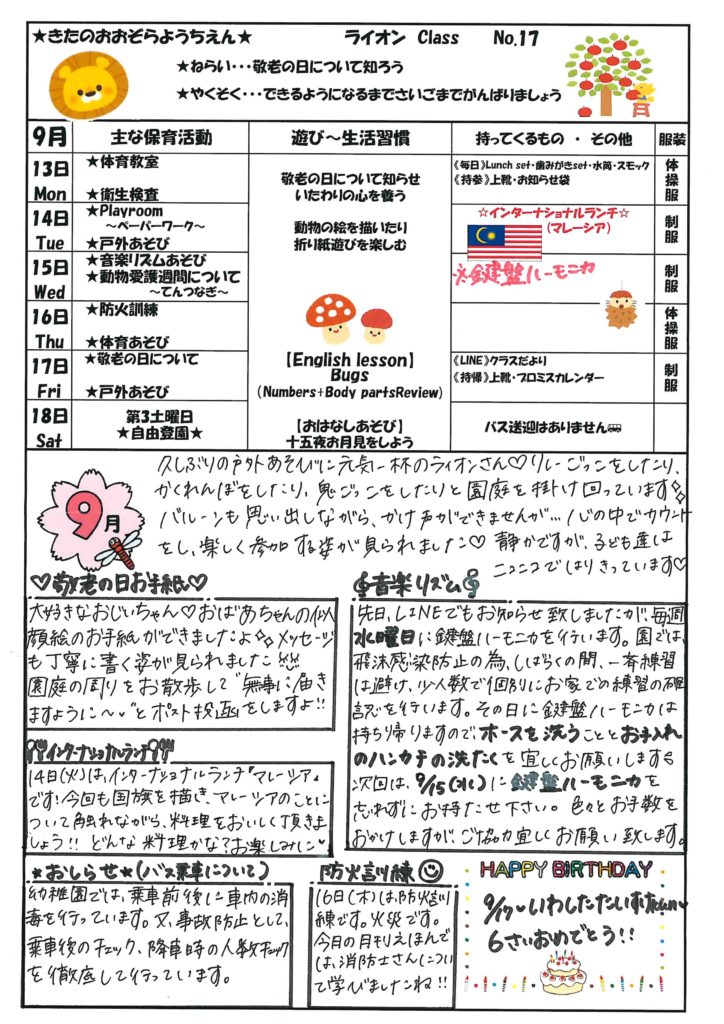 ★きたのおおぞらようちえん★ ライオン Class No.17
★ねらい・・・敬老の日について知ろう
★やくそく・・・できるようになるまでさいごまでがんばりましょう
9月 主な保育活動 遊び～生活習慣 持ってくるもの ・ その他 服装
13日 Mon
★体育教室
★衛生検査
敬老の日について知らせ
いたわりの心を養う
《毎日》Lunch set・歯みがきset・水筒・スモック
《持参》上靴・お知らせ袋
体操服
14日 Tue
★Playroom
～ペーパーワーク～
★戸外あそび
動物の絵を描いたり
折り紙遊びを楽しむ
☆インターナショナルランチ☆
(マレーシア)
制服
15日 Wed
★音楽リズムあそび
★動物愛護週間について
～てんつなぎ～
※鍵盤ハーモニカ
制服
16日 Thu
★防火訓練
★体育あそび
体操服
17日 Fri
★敬老の日について
★戸外あそび
【English lesson】
Bugs
(Numbers+Body partsReview)
《LINE》クラスだより
《持帰》上靴・プロミスカレンダー
制服
18日 Sat
第3土曜日
★自由登園★
【おはなしあそび】
十五夜お月見をしよう
バス送迎はありません
9月
久しぶりの戸外あそびに元気一杯のライオンさん♡リレーごっこをしたり、
かくれんぼをしたり、鬼ごっこをしたりと園庭を掛け回っています
バルーンも思い出しながら、かけ声ができませんが…心の中でカウント
をし、楽しく参加する姿が見られました♡ 静かですが、子ども達は
ニコニコではりきっています♡
♡敬老の日お手紙♡
大好きなおじいちゃん♡おばあちゃんの似
顔絵のお手紙ができましたよ メッセージ
も丁寧に書く姿が見られました
園庭の周りをお散歩して"無事に届き
ますように～"とポスト投函をしますよ!!
音楽リズム
先日、LINEでもお知らせ致しましたが、毎週
水曜日に鍵盤ハーモニカを行います。園では、
飛沫感染防止の為、しばらくの間、一斉練習
は避け、少人数で個別にお家での練習の確
認を行います。その日に鍵盤ハーモニカは
持ち帰りますので、ホースを洗うこととお手入れ
のハンカチの洗たくを宜しくお願いします
次回は、9/15(水)に鍵盤ハーモニカを
忘れずにお持たせ下さい。色々とお手数を
おかけしますが、ご協力宜しくお願い致します。
インターナショナルランチ
14日(火)は、インターナショナルランチ『マレーシア』
です!今回も国旗を描き、マレーシアのことに
ついて触れながら、料理をおいしく頂きま
しょう!! どんな料理かな?お楽しみに♥
★おしらせ★(バス乗車について)
幼稚園では、乗車前後に車内の消
毒を行っています。又、事故防止として、
乗車後のチェック、降車時の人数チェック
を徹底して行っています。
防火訓練
16日(木)は、防火訓
練です。火災です。
今日の月刊えほんで
は、消防士さんについ
て学びましたね!!
HAPPY BIRTHDAY
9/17♥いわしただいすけ
6さいおめでとう!!